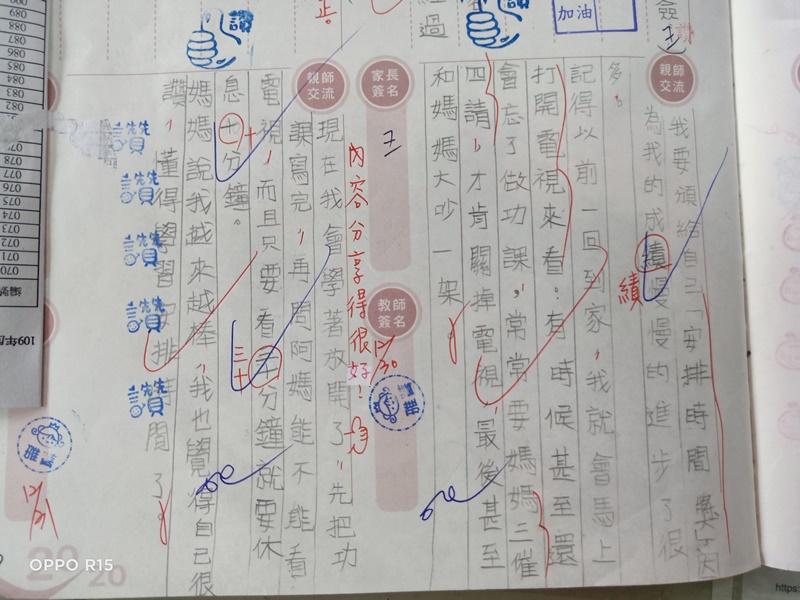 簽
加油
讚
過
正。
親師交流
我要頒給自己「安排時間獎」因
為我的成績慢慢的進步了很
績
多。
記得以前一回到家，我就會馬上
打開電視來看。有時候甚至還
會忘了做功課，常常要媽媽三催
四請，才肯關掉電視，最後甚至
和媽媽大吵一架。
家長簽名
王
教師簽名
12/30
內容分享得很好！
現在我會學著放開了，先把功
親師交流
課寫完，再問阿媽能不能看
電視，而且只要看三十分鐘就要休
三十
息十分鐘。
十
媽媽說我越來越棒，我也覺得自己很
讚，懂得學習安排時間了。
讚
讚
讚
讚
讚
12/31
2020
109年度
編號
070
071
072
073
074
075
076
077
078
082
083
084
085
086
087
088
089
090
OPPO R15
https: